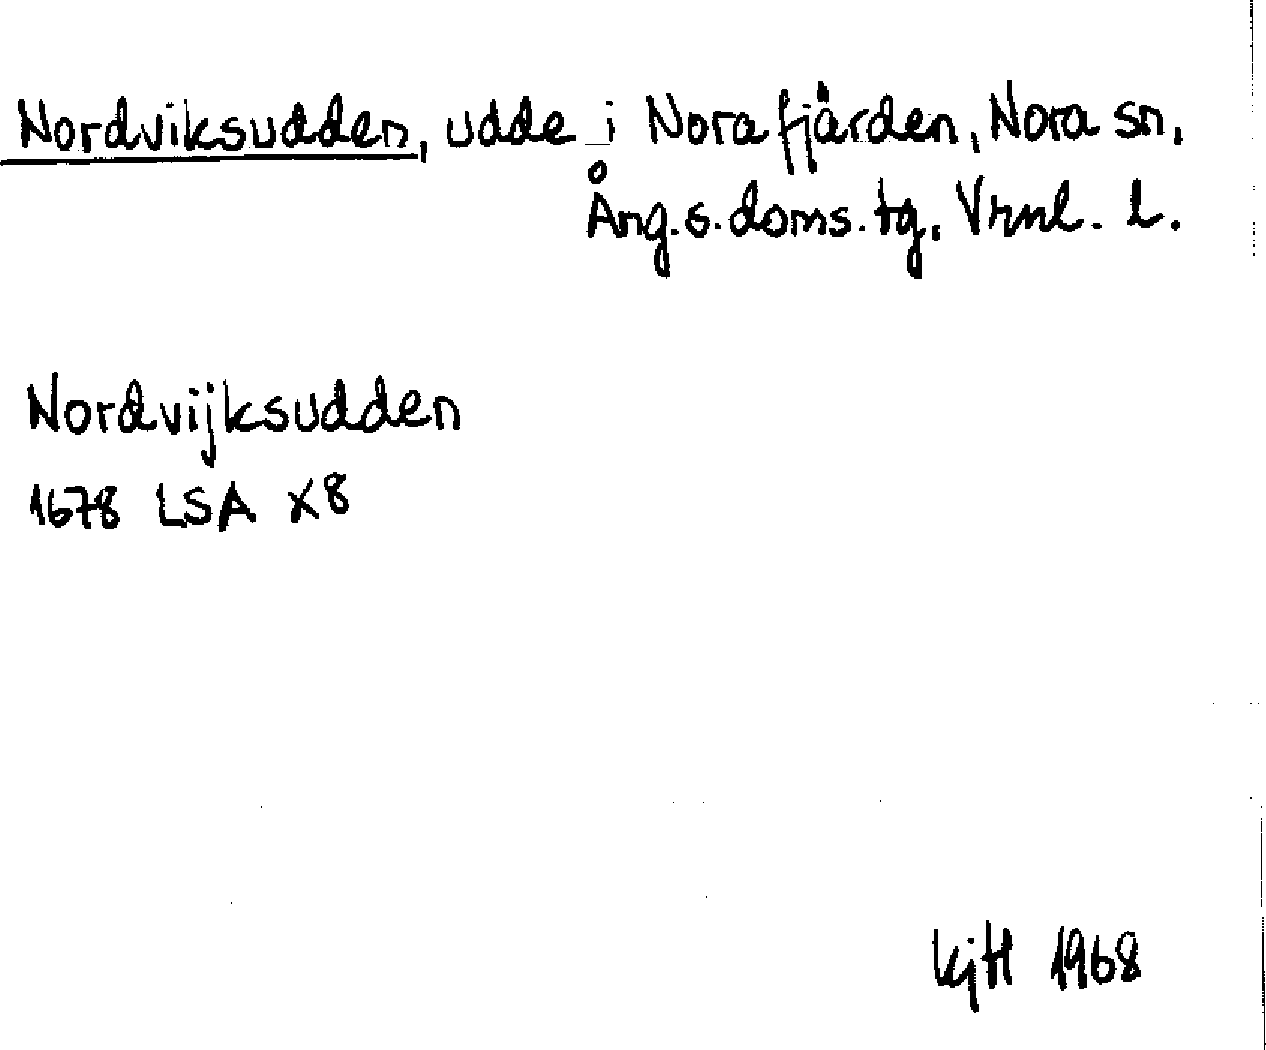 Nordviksudden, udde i Norafjärden, Nora sn,
Ång.s.doms.tg. Vrnl. L.
Nordvijksudden
1678 LSA X8
KjH 1968